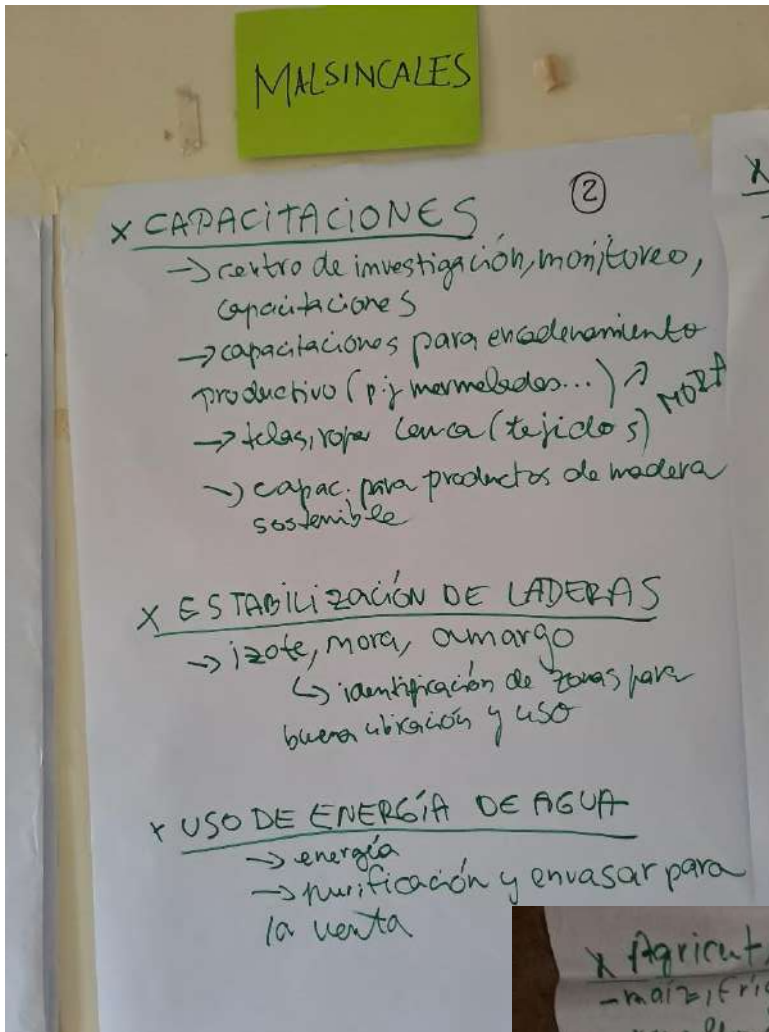 MALSINCALES
②
x CAPACITACIONES
→ centro de investigación, monitoreo,
capacitaciones
→ capacitaciones para encadenamiento
productivo (p.j mermeladas...) ↗ MORA
→ telas, ropa Lenca (tejidos)
→ capac. para productos de madera
sostenible
x ESTABILIZACIÓN DE LADERAS
→ izote, mora, amargo
↳ identificación de zonas para
buena ubicación y uso
x USO DE ENERGÍA DE AGUA
→ energía
→ purificación y envasar para
la venta
x Agricut
- maiz, fri